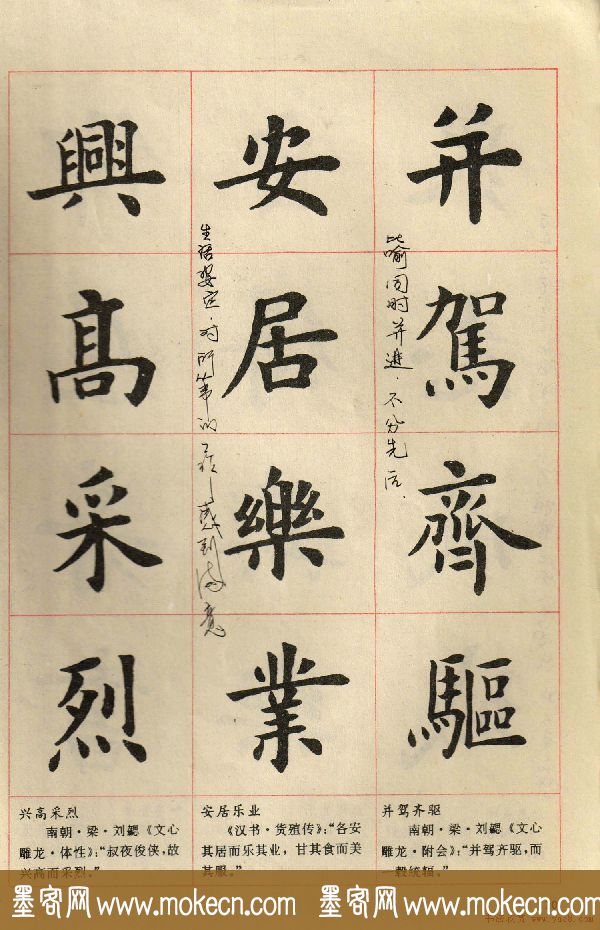 并駕齊驅
比喻同时并进.不分先后.
安居樂業
生活安定.对所从事的工作感到满意
興髙采烈
并驾齐驱
南朝·梁·刘勰《文心
雕龙·附会》：“并驾齐驱，而
一毂统辐。”
安居乐业
《汉书·货殖传》：“各安
其居而乐其业，甘其食而美
其服。”
兴高采烈
南朝·梁·刘勰《文心
雕龙·体性》：“叔夜俊侠，故
兴高而采烈。”
墨客网 www.mokecn.com 墨客网 www.mokecn.com